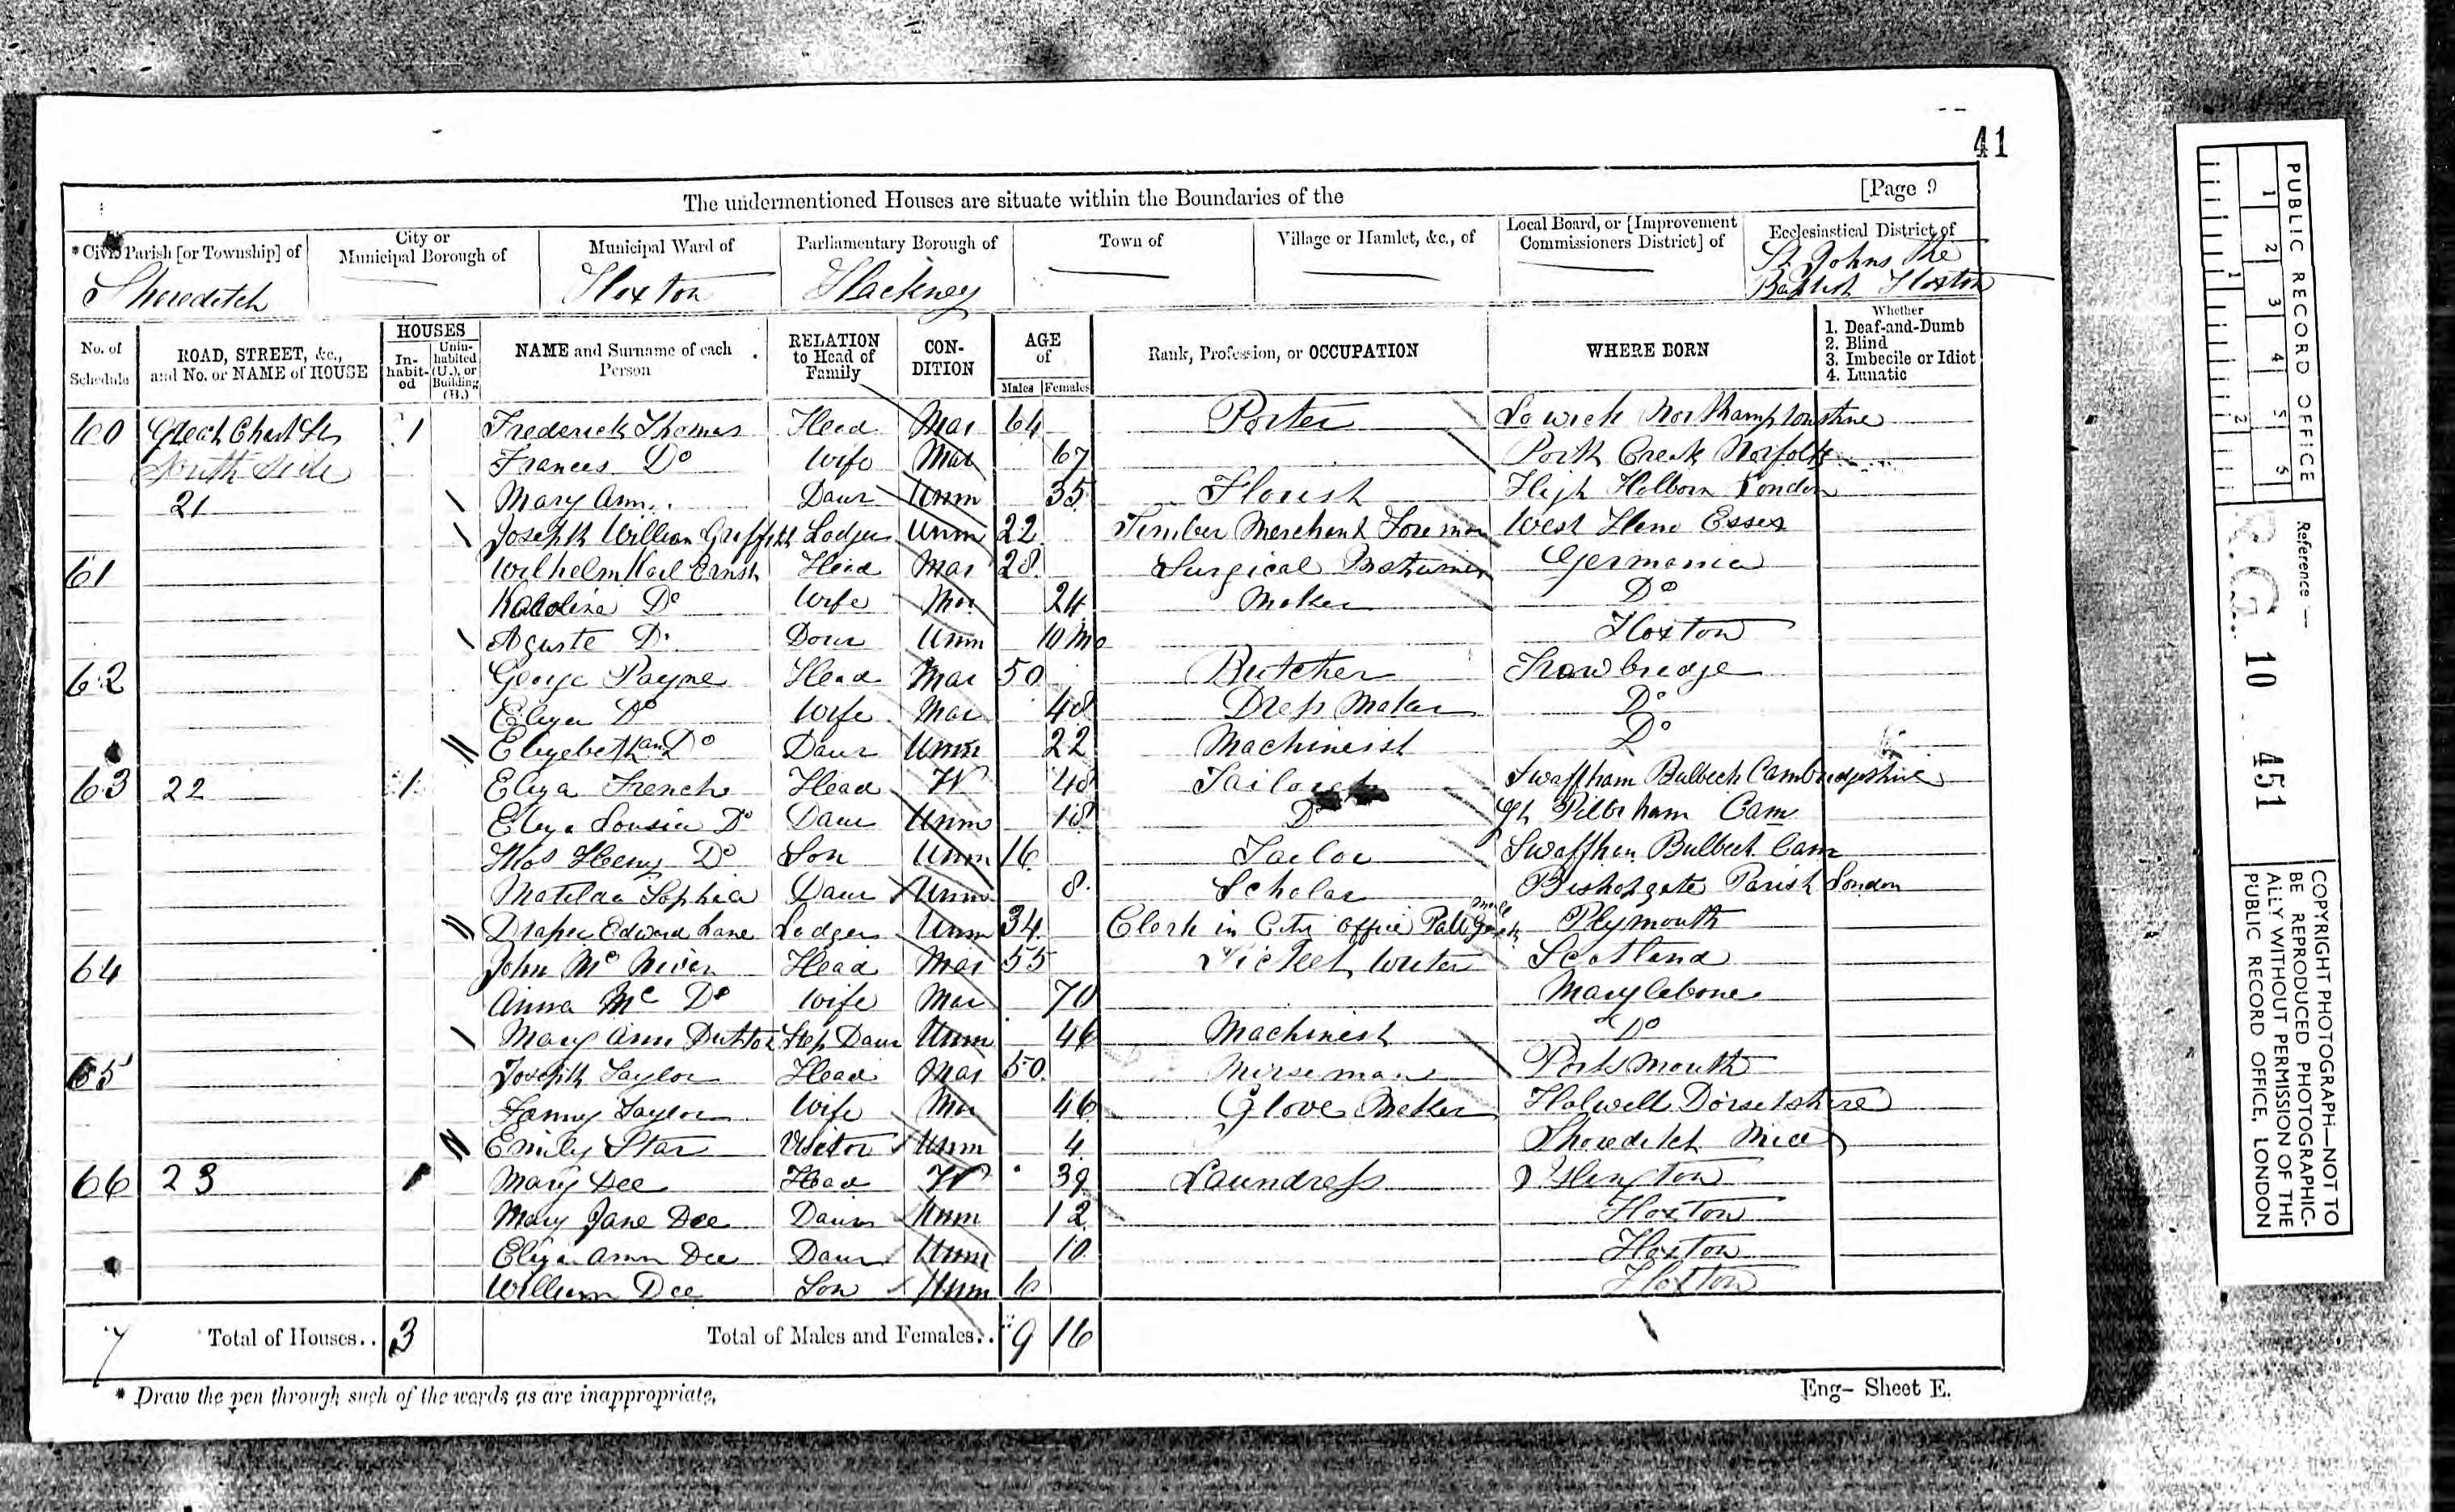 41
The undermentioned Houses are situate within the Boundaries of the [Page 9
*Civil Parish [or Township] of Shoreditch
City or Municipal Borough of
Municipal Ward of Hoxton
Parliamentary Borough of Hackney
Town of
Village or Hamlet, &c., of
Local Board, or [Improvement Commissioners District] of
Ecclesiastical District of St. Johns The Baptist Hoxton
No. of Schedule
ROAD, STREET, &c., and No. or NAME of HOUSE
HOUSES
In-habit-ed
Unin-habited (U.), or Building (B.)
NAME and Surname of each Person
RELATION to Head of Family
CON-DITION
AGE of
Males Females
Rank, Profession, or OCCUPATION
WHERE BORN
Whether
1. Deaf-and-Dumb
2. Blind
3. Imbecile or Idiot
4. Lunatic
60 Great Chart St 1 Frederick Thomas Head Mar 64 Porter Lowick Northamptonshire
South Side Frances Do Wife Mar 67 Norfolk
21 Mary Ann Daur Unm 35 Florist High Holborn London
Joseph William Griffith Lodger Unm 22 Timber Merchant Foreman West Ham Essex
61 Wilhelm Karl Ernst Head Mar 28 Surgical Instrument Germania
Karoline Do Wife Mar 24 Maker Do
Aguste Do Daur Unm 10 Mo Hoxton
62 George Payne Head Mar 50 Butcher Trowbridge
Eliza Do Wife Mar 48 Dress Maker Do
Elizebeth an Do Daur Unm 22 Machineist Do
63 22 1 Eliza French Head W 48 Tailoress Swaffham Bulbeck Cambridgeshire
Eliza Lousia Do Daur Unm 18 Do Cam
Thos Henry Do Son Unm 16 Tailor Swaffham Bulbeck Cam
Matilda Sophia Daur Unm 8 Scholar Bishopgate Parish London
Draper Edward Lane Lodger Unm 34 Clerk in City Office Plymouth
64 John Mc Niven Head Mar 55 Ticket Writer Scotland
Anna Mc Do Wife Mar 70 Marylebone
Mary Ann Dutton Step Daur Unm 46 Machinist Do
65 Joseph Taylor Head Mar 50 Nurseman Portsmouth
Fanny Taylor Wife Mar 46 Glove Maker Holwell Dorsetshire
Emily Star Visitor Unm 4 Shoreditch Midd
66 23 1 Mary Dee Head W 39 Laundress Islington
Mary Jane Dee Daur Unm 12 Hoxton
Eliza Ann Dee Daur Unm 10 Hoxton
William Dee Son Unm 6 Hoxton
7 Total of Houses.. 3 Total of Males and Females.. 9 16
* Draw the pen through such of the words as are inappropriate.
Eng- Sheet E.
PUBLIC RECORD OFFICE
1 2 3 4 5 5
1 2
Reference :—
R.G. 10 451
COPYRIGHT PHOTOGRAPH—NOT TO
BE REPRODUCED PHOTOGRAPHIC-
ALLY WITHOUT PERMISSION OF THE
PUBLIC RECORD OFFICE, LONDON